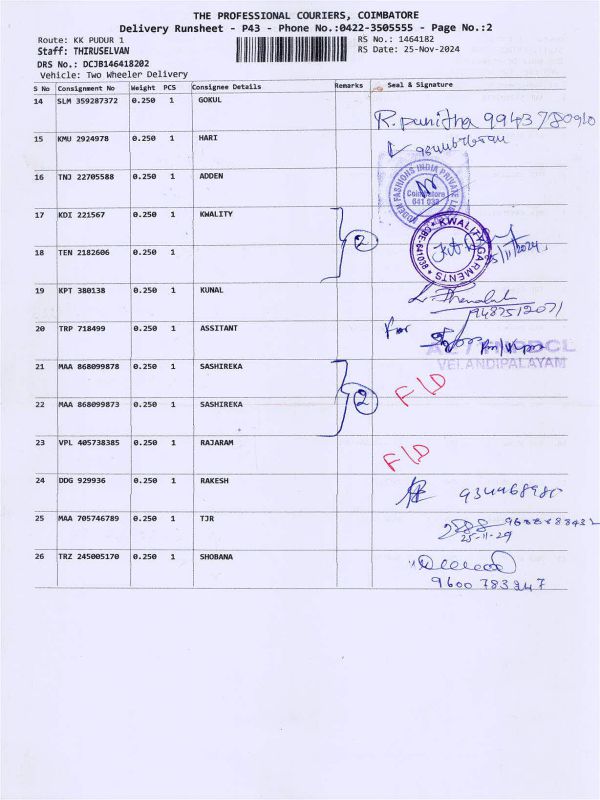 THE PROFESSIONAL COURIERS, COIMBATORE
Delivery Runsheet - P43 - Phone No.:0422-3505555 - Page No.:2
Route: KK PUDUR 1
RS No.: 1464182
Staff: THIRUSELVAN
RS Date: 25-Nov-2024
DRS No.: DCJB146418202
Vehicle: Two Wheeler Delivery
S No Consignment No Weight PCS Consignee Details Remarks Seal & Signature
14 SLM 359287372 0.250 1 GOKUL
R. Punitha 9943780910
15 KMU 2924978 0.250 1 HARI
16 TNJ 22705588 0.250 1 ADDEN
ADDEN FASHIONS INDIA PRIVATE
Coimbatore
641 038
17 KDI 221567 0.250 1 KWALITY
2
KWALITY GARMENTS
25/11/2024
18 TEN 2182606 0.250 1
19 KPT 380138 0.250 1 KUNAL
9487512071
20 TRP 718499 0.250 1 ASSITANT
For
VELANDIPALAYAM
21 MAA 868099878 0.250 1 SASHIREKA
2
F/D
22 MAA 868099873 0.250 1 SASHIREKA
23 VPL 405738385 0.250 1 RAJARAM
F/D
24 DDG 929936 0.250 1 RAKESH
25 MAA 705746789 0.250 1 TJR
25-11-24
26 TRZ 245005170 0.250 1 SHOBANA
9600783247